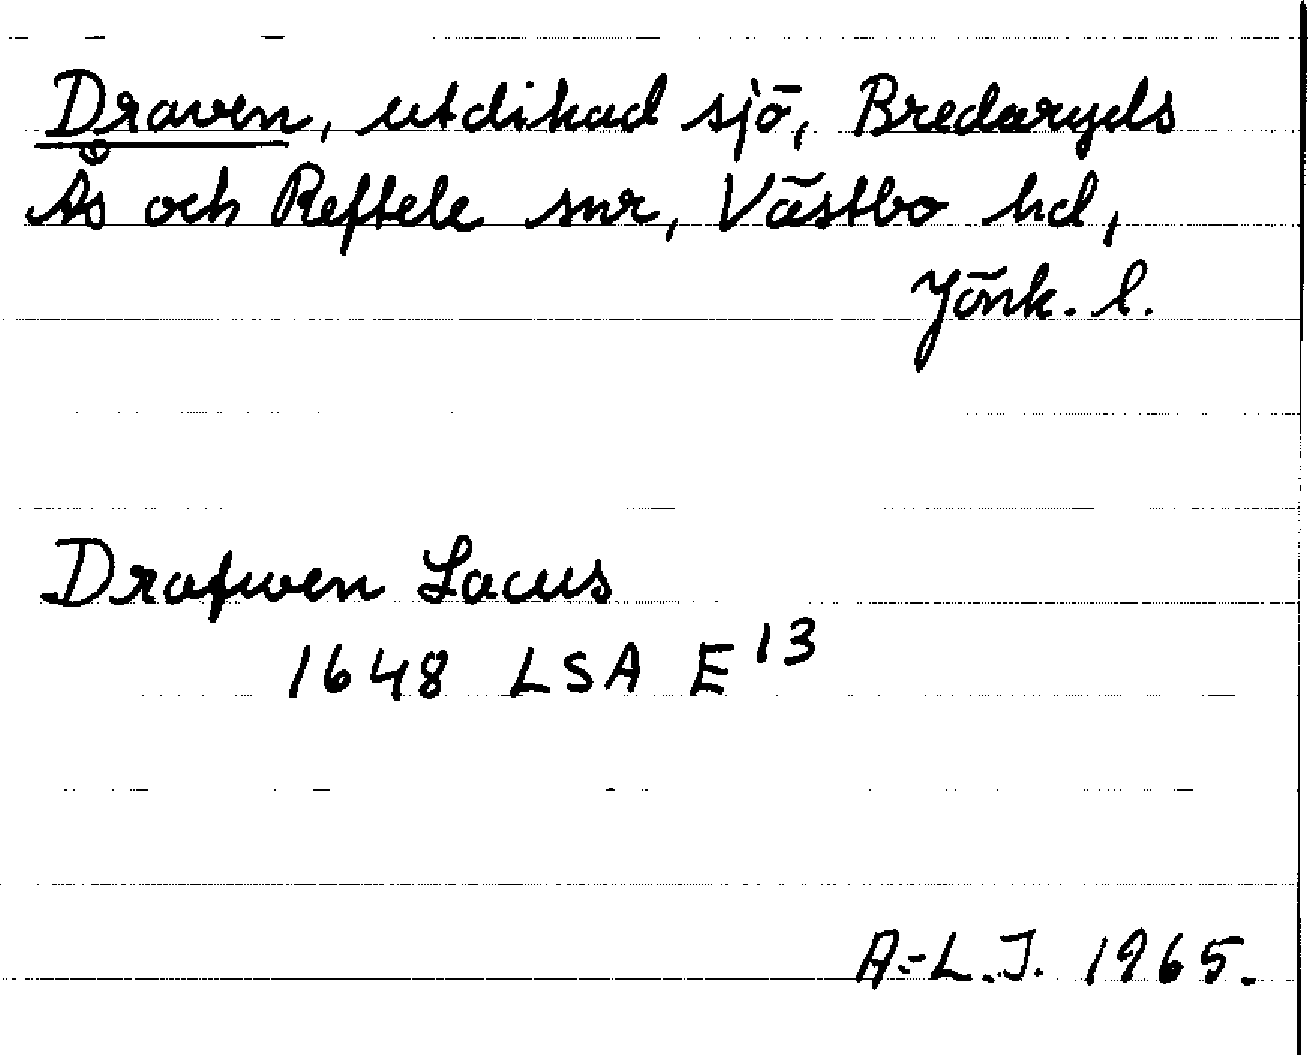 Draven, utdikad sjö, Bredaryds
Ås och Reftele snr, Västbo hd,
Jönk. l.
Drafwen Lacus
1648 LSA E 13
A.-L.J. 1965.